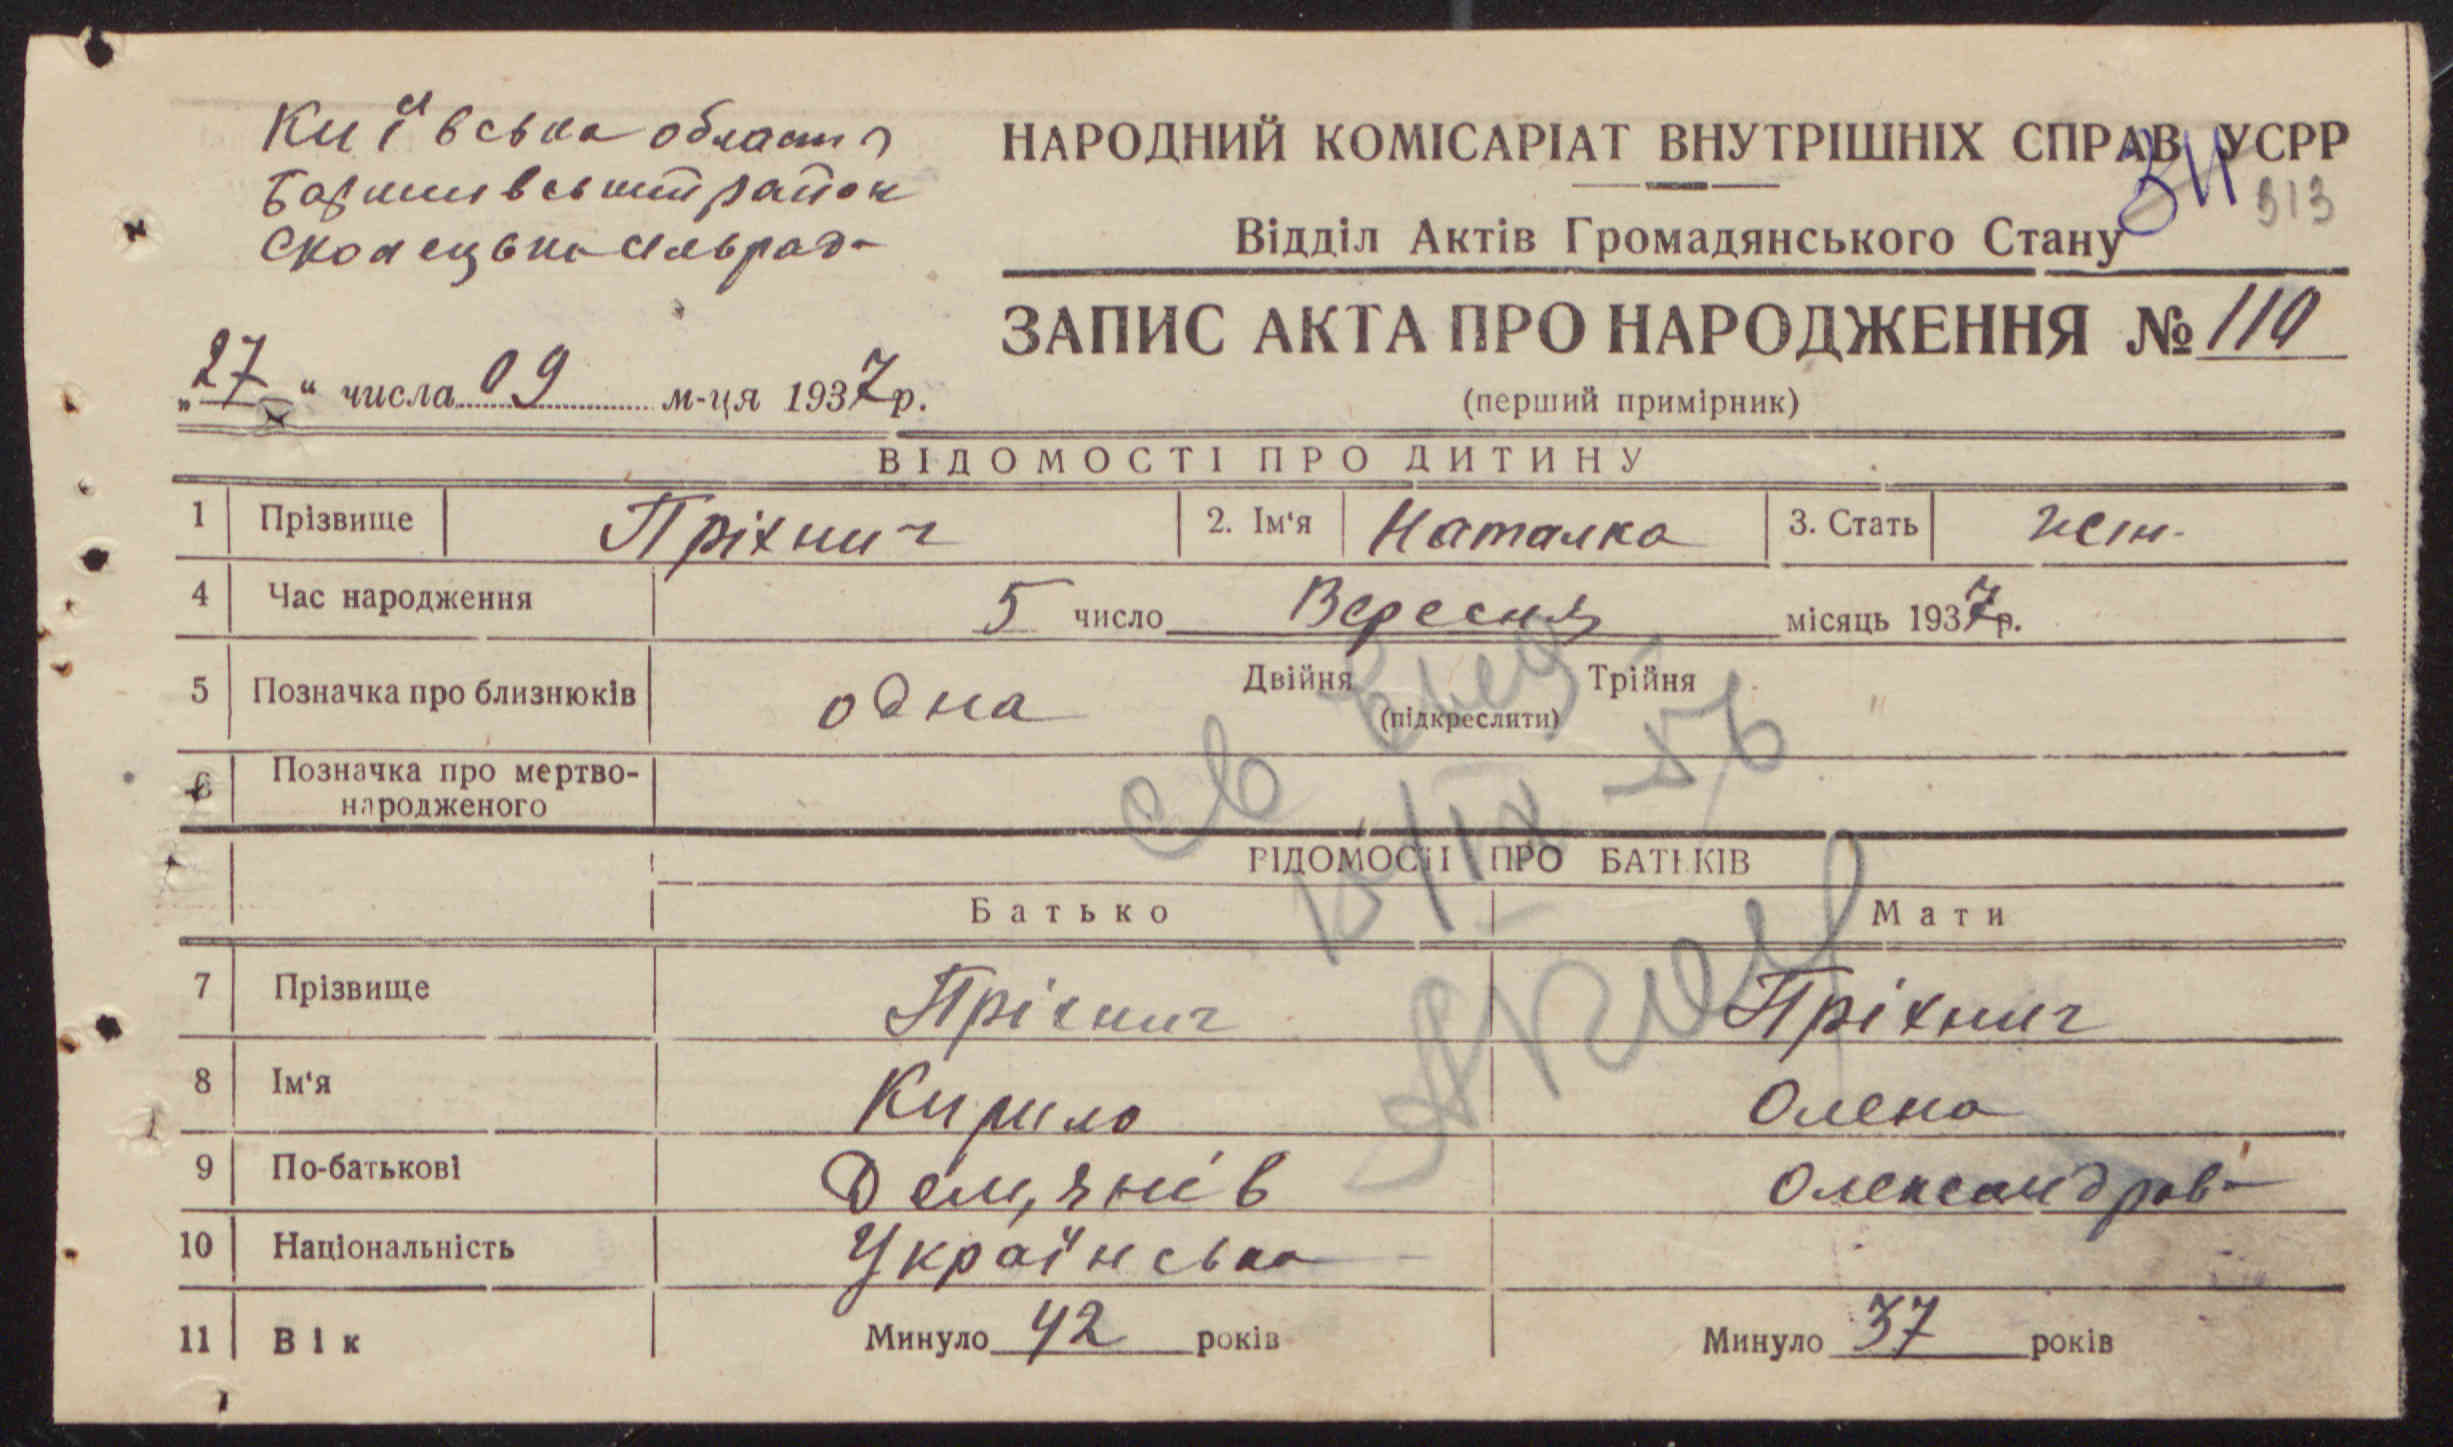 Київська область
Баришивський район
Скопецька сільрада
НАРОДНИЙ КОМІСАРІАТ ВНУТРІШНІХ СПРАВ УСРР
313
Відділ Актів Громадянського Стану
ЗАПИС АКТА ПРО НАРОДЖЕННЯ № 110
„27“ числа 09 м-ця 1937 р.
(перший примірник)
ВІДОМОСТІ ПРО ДИТИНУ
1 Прізвище Пріхнич 2. Ім‘я Наталка 3. Стать жін.
4 Час народження 5 число Вересня місяць 1937 р.
5 Позначка про близнюків одна Двійня Трійня
(підкреслити)
6 Позначка про мертво-
народженого
ВІДОМОСТІ ПРО БАТЬКІВ
Батько Мати
7 Прізвище Пріхнич Пріхнич
8 Ім‘я Кирило Олена
9 По-батькові Дем,янів Олександров
10 Національність Українська
11 Вік Минуло 42 років Минуло 37 років